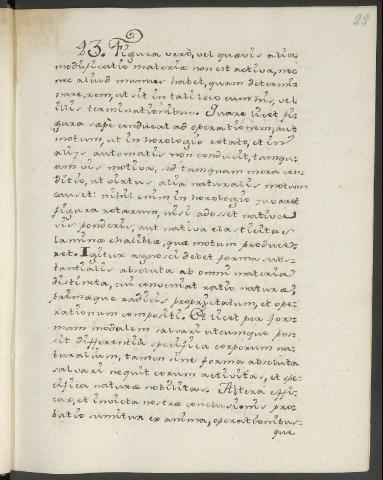 29
23. Figura verò, vel quævis alia
modificatio materiæ non est activa, nec
nec aliud munus habet, quam determi-
nare, rem, ut sit in tali loco cum his, vel
illis terminationibus. Quare licet fi-
gura sæpè conducat ad operationem, aut
motum, ut in horologio rotato, et in
alijs automatis non conducit, tamqu-
am vis motiva, sed tamquam mera con-
ditio, ut virtus alia naturalis motum
causet: nihil enim in horologio juvaret
figura rotarum, nisi adesset nativa
vis ponderis, aut nativa elasticitas
laminæ chalibeæ, quæ motum produce-
ret. Igitur agnosci debet forma subs-
tantialis absoluta ab omni materia
distincta, cui conveniat ratio naturæ,
primaque radicis proprietatum, et ope-
rationum compositi. Et licet per for-
mam modalem salvari utcumque pos-
sit differentia specifica corporum na-
turalium, tamen sine forma absoluta
salvari nequit eorum activitas, et spe-
cifica naturæ nobilitas. Altera effi-
cax, et invicta nostræ conclusionis pro-
batio sumitur ex anima, operationibus-
que